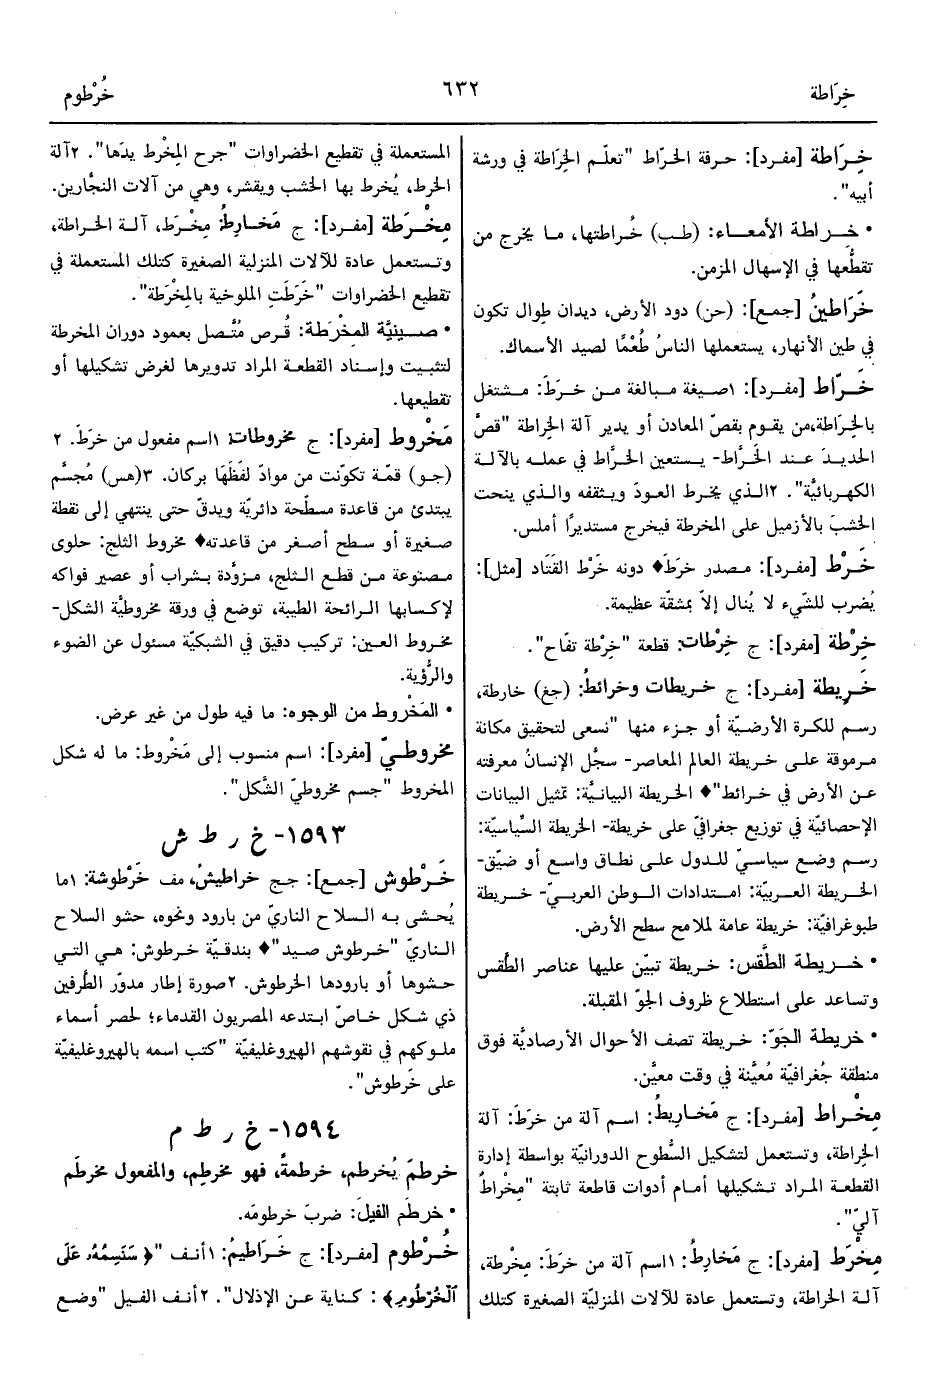 خِرَاطة
٦٣٢
خُرْطوم
خِرَاطة [مفرد]: حرفة الخرّاط "تعلّم الخِرَاطة في ورشة
أبيه".
• خـراطة الأمعـاء: (طـب) خُراطتها، مـا يخرج من
تقطُّعها في الإسهال المزمن.
خَرَاطينُ [جمع]: (حن) دود الأرض، ديدان طِوال تكون
في طين الأنهار، يستعملها الناسُ طُعْمًا لصيد الأسماك.
خَرَّاط [مفرد]: ١صيغة مبالغة مـن خـرَطَ: مـشتغل
بالخِرَاطة،من يقوم بقصّ المعادن أو يدير آلة الخِراطة "قصَّ
الحديدَ عند الخَرَّاط- يستعين الخرَّاط في عمله بالآلـة
الكهربائيَّة". ٢الذي يخرط العودَ ويثقفه والذي ينحت
الخشبَ بالأزميل على المخرطة فيخرج مستديرًا أملس.
خَرْط [مفرد]: مـصدر خرَطَ♦ دونه خَرْط القَتَاد [مثل]:
يُضرب للشّيء لا يُنال إلاّ بمشقّة عظيمة.
خِرْطة [مفرد]: ج خِرْطات: قطعة "خِرْطة تفّاح".
خَرِيطة [مفرد]: ج خريطات وخرائطُ: (جغ) خارطة،
رسم للكرة الأرضيّة أو جزء منها "نسعى لتحقيق مكانة
مرموقة على خريطة العالم المعاصر- سجَّل الإنسانُ معرفته
عن الأرض في خرائط"♦ الخريطة البيانيَّة: تمثيل البيانات
الإحصائيّة في توزيع جغرافيّ على خريطة- الخريطة السِّياسيّة:
رسم وضع سياسيّ للدول على نطاق واسع أو ضيّق-
الخريطة العربيّة: امتدادات الـوطن العربيّ- خريطة
طبوغرافيّة: خريطة عامة لملامح سطح الأرض.
• خـريطة الطَّقْس: خريطة تبيّن عليها عناصر الطَّقس
وتساعد على استطلاع ظروف الجوّ المقبلة.
• خريطة الجَوّ: خـريطة تصف الأحوال الأرصاديَّة فوق
منطقة جُغرافيّة مُعيَّنة في وقت معيَّن.
مِخْراط [مفرد]: ج مَخَاريطُ: اسم آلة من خرَطَ: آلة
الخِراطة، وتستعمل لتشكيل السُّطوح الدورانيّة بواسطة إدارة
القطعـة المراد تـشكيلها أمـام أدوات قاطعة ثابتة "مِخْراطٌ
آليّ".
مِخْرَط [مفرد]: ج مَخارِطُ: ١اسم آلة من خرَطَ: مِخْرطة،
آلـة الخراطة، وتستعمل عادة للآلات المنزليّة الصغيرة كتلك
المستعملة في تقطيع الخضراوات "جرح المِخْرط يدَها". ٢آلة
الخرط، يُخرط بها الخشب ويقشر، وهي من آلات النجَّارين.
مِخْـرَطة [مفـرد]: ج مَخـارِطُ: مِخْـرَط، آلـة الخـراطة،
وتـستعمل عادة للآلات المنزلية الصغيرة كتلك المستعملة في
تقطيع الخضراوات "خَرَطَتِ الملوخية بالمِخْرَطة".
• صـينيَّة المِخْرَطة: قُـرص مُتَّصل بعمود دوران المخرطة
لتثبيت وإسناد القطعة المراد تدويرها لغرض تشكيلها أو
تقطيعها.
مَخْروط [مفرد]: ج مخروطات: ١اسم مفعول من خرَطَ. ٢
(جـو) قمّـة تكوّنت من موادّ لفَظَها بركان. ٣(هس) مُجسَّم
يبتدئ من قاعدة مسطّحة دائريّة ويدقّ حتى ينتهي إلى نقطة
صـغيرة أو سـطح أصـغر من قاعدته♦ مخروط الثلج: حلوى
مـصنوعة مـن قطع الـثلج، مـزوَّدة بـشراب أو عصير فواكه
لإكـسابها الـرائحة الطيبة، توضع في ورقة مخروطيَّة الشكل-
مخروط العين: تركيب دقيق في الشبكيّة مسئول عن الضوء
والرُّؤية.
• المَخْروط من الوجوه: ما فيه طول من غير عرض.
مخروطيّ [مفرد]: اسم منسوب إلى مَخْروط: ما له شكل
المخروط "جسم مخروطيّ الشَّكل".
١٥٩٣- خ ر ط ش
خَـرْطُوش [جمع]: جج خراطيشُ، مف خَرْطوشة: ١ما
يُحـشى بـه الـسلاح الناريّ من بارود ونحوه، حشو السلاح
الـناريّ "خـرطوش صـيد"♦ بندقيّة خرطوش: هـي التي
حـشوها أو بارودها الخرطوش. ٢صورة إطار مدوّر الطَّرفين
ذي شـكل خـاصّ ابـتدعه المصريون القدماء؛ لحصر أسماء
ملـوكهم في نقوشهم الهيروغليفيّة "كتب اسمه بالهيروغليفيّة
على خَرطوش".
١٥٩٤- خ ر ط م
خرطمَ يُخرطم، خرطمةً، فهو مخرطِم، والمفعول مخرطَم
• خرطَم الفيلَ: ضربَ خرطومَه.
خُـرْطوم [مفـرد]: ج خَـرَاطيمُ: ١أنـف "﴿ سَنَسِمُهُۥ عَلَى
ٱلْخُرْطُومِ﴾ : كـناية عـن الإذلال". ٢أنـف الفيل "وضـع